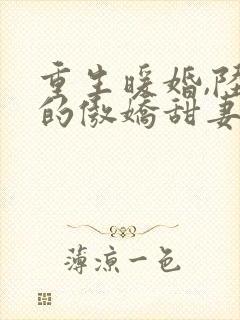 重生暖婚,陆
的傲娇甜妻
薄凉一色